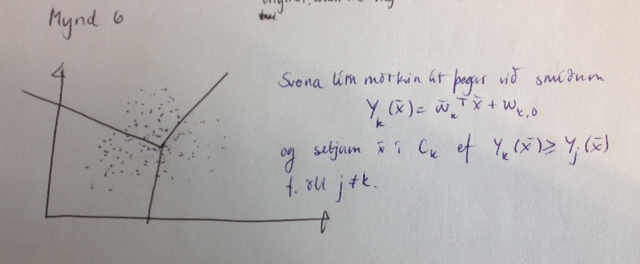 Mynd 6
Svona lím mörkin út þegar við smíðum
Y_k(x̄) = w̄_k^T x̄ + w_{k,0}
og setjum x̄ í C_k ef Y_k(x̄) ≥ Y_j(x̄)
f. öll j ≠ k.